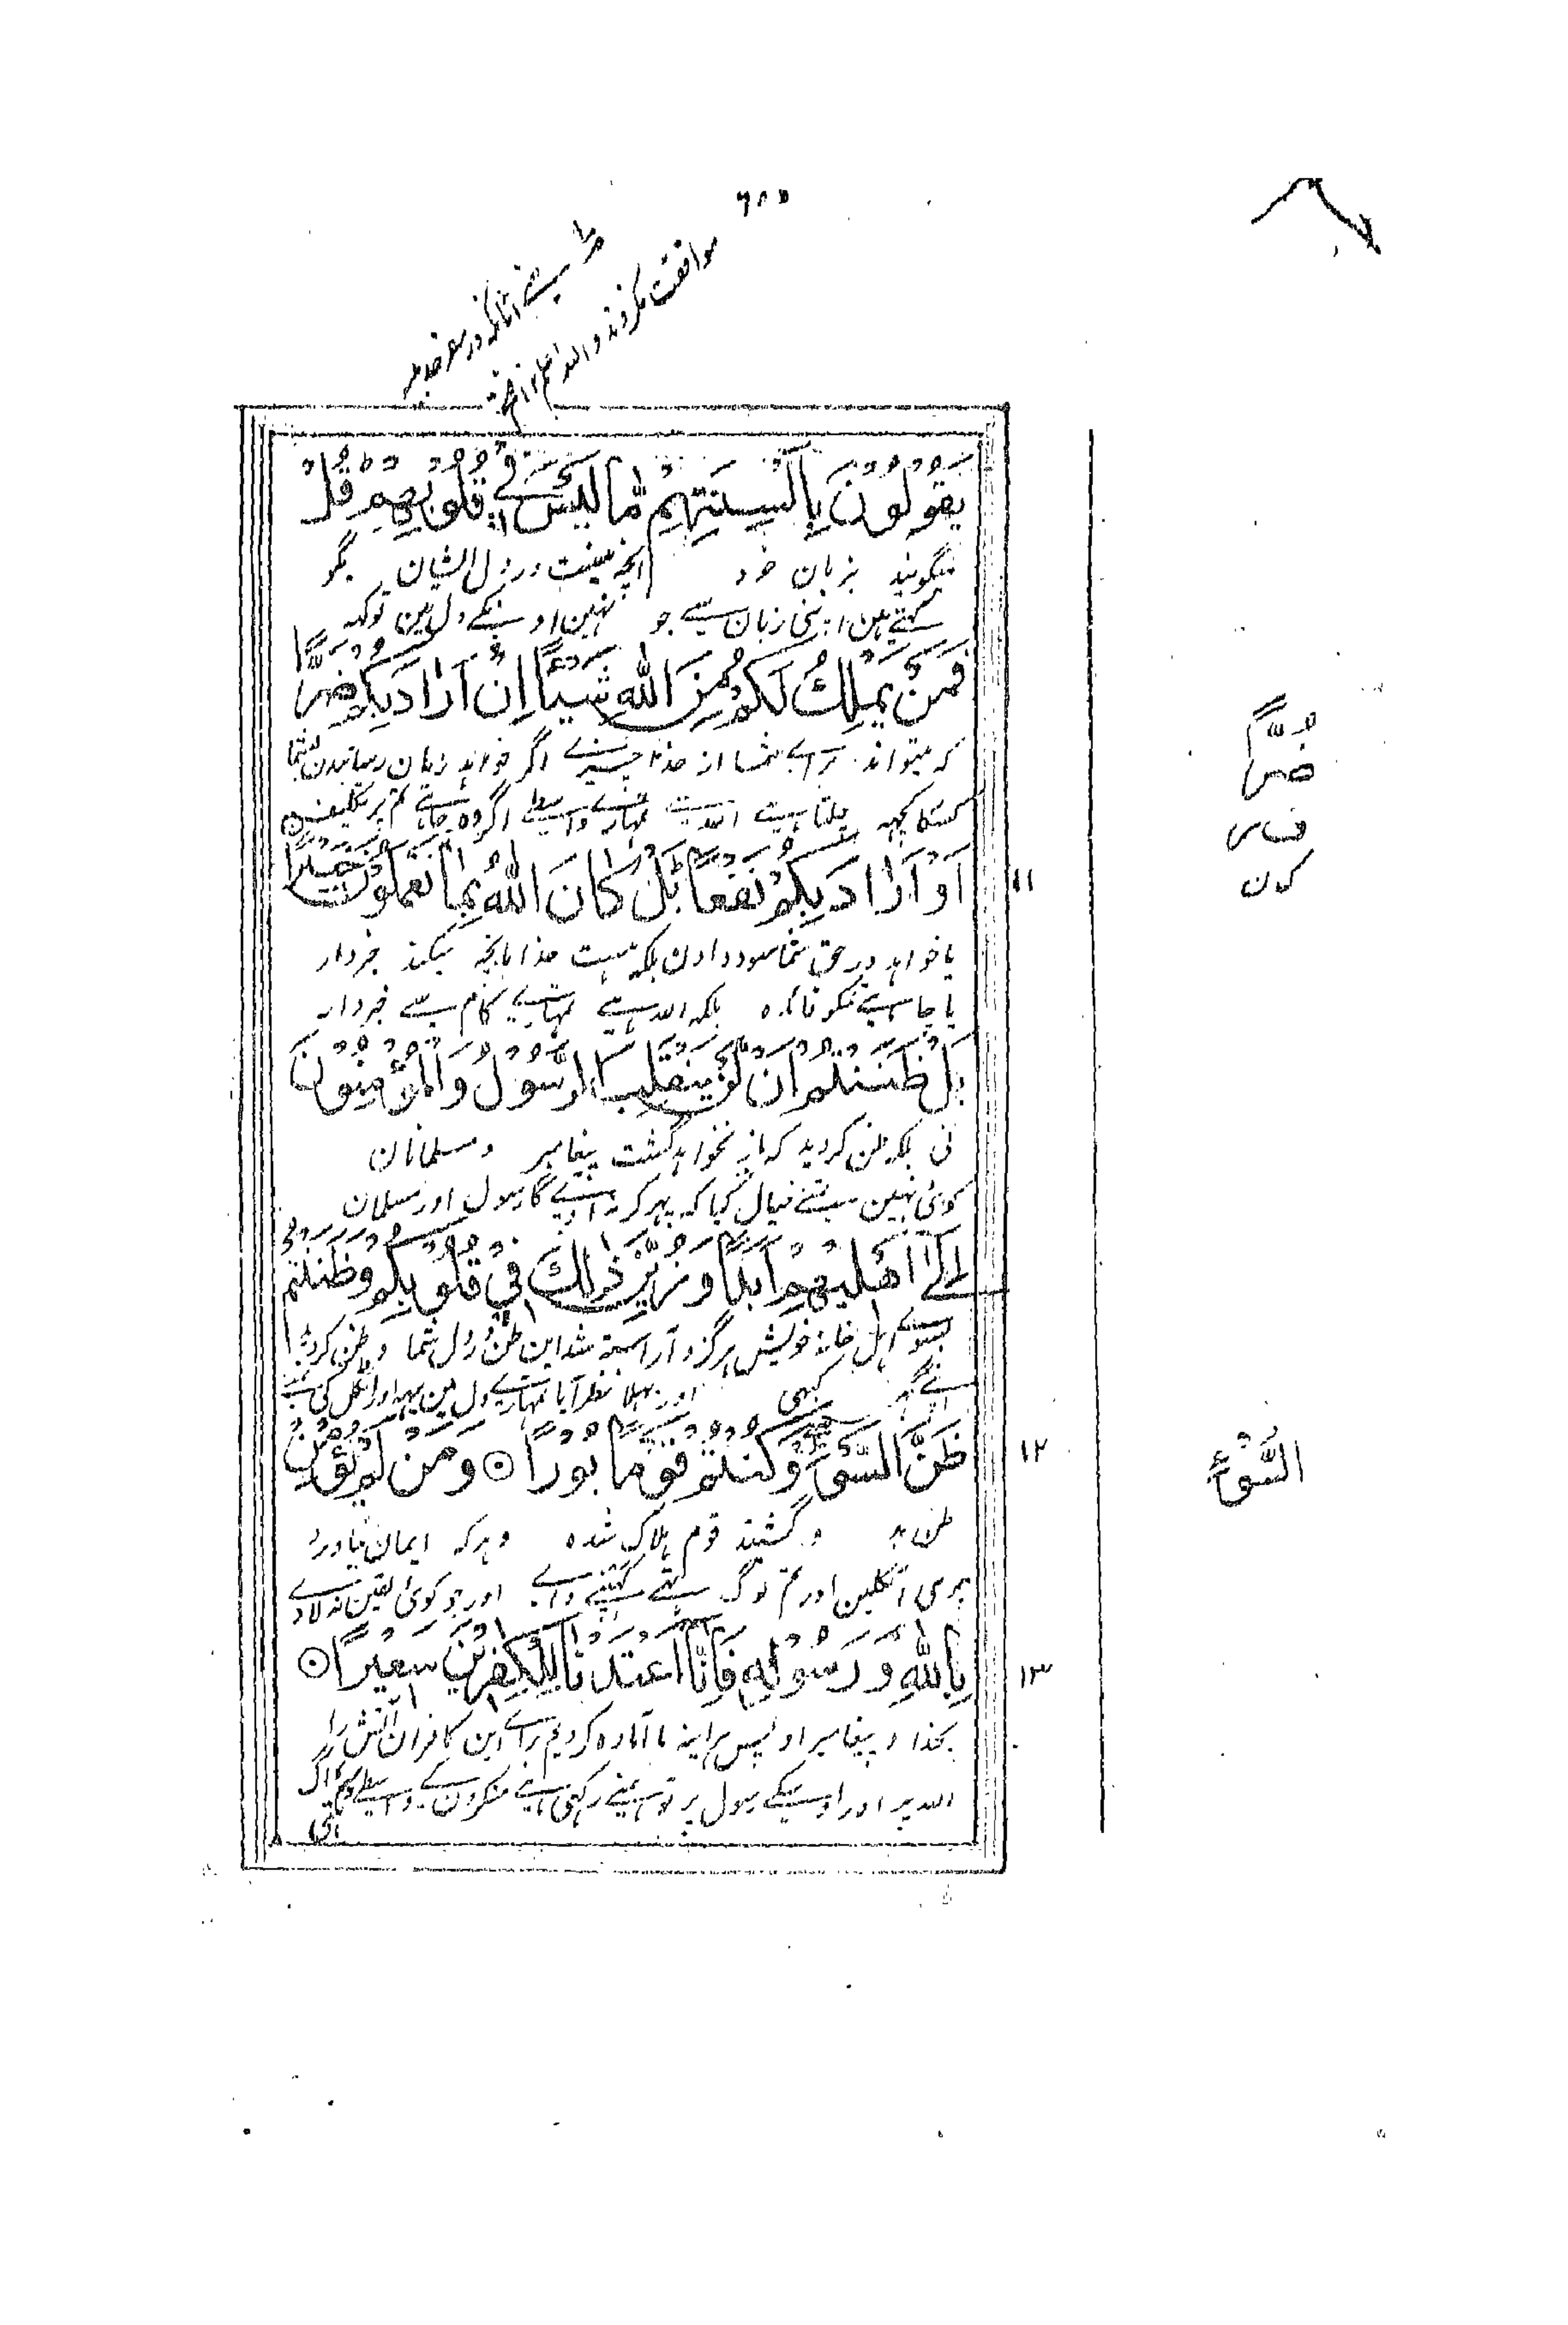 موافقت نکردند والله اعلم
یَقُوۡلُوۡنَ بِاَلۡسِنَتِہِمۡ مَّا لَیۡسَ فِیۡ قُلُوۡبِہِمۡ قُلۡ
میگویند بزبان خود آنچه نیست در دل ایشان بگو
کہتے ہین اپنی زبان سے جو نہین اونکے دل مین توکہہ
فَمَنۡ یَّمۡلِکُ لَکُمۡ مِّنَ اللّٰہِ شَیۡئًا اِنۡ اَرَادَ بِکُمۡ ضَرًّا
که میتواند برائے شما از خدا چیزے اگر خواهد زیان رسانیدن بشما
کسکا کچہہ چلتا ہے اللہ سے تمہارے واسطے اگر وہ چاہے تم پر تکلیف
اَوۡ اَرَادَ بِکُمۡ نَفۡعًا بَلۡ کَانَ اللّٰہُ بِمَا تَعۡمَلُوۡنَ خَبِیۡرًا
۱۱
یا خواهد در حق شما سود دادن بلکه هست خدا بآنچه میکنید خبردار
یا چاہے تمکو فائدہ بلکہ اللہ ہے تمہارے کام سے خبردار
بَلۡ ظَنَنۡتُمۡ اَنۡ لَّنۡ یَّنۡقَلِبَ الرَّسُوۡلُ وَالۡمُؤۡمِنُوۡنَ
نی بلکه ظن کردید که باز نخواهد گشت پیغامبر و مسلمانان
کوئی نہین تمنے خیال کیا کہ پہر کر نہ آویگا رسول اور مسلمان
اِلٰۤی اَہۡلِیۡہِمۡ اَبَدًا وَّ زُیِّنَ ذٰلِکَ فِیۡ قُلُوۡبِکُمۡ وَظَنَنۡتُمۡ
بسوے اهل خانه خویش هرگز و آراسته شد این ظن در دل شما و ظن کردید
اپنے گہر کبہی اور بہلا نظر آیا تمہارے دل مین یہہ اور اٹکل کی تمنے
ظَنَّ السَّوۡءِ وَکُنۡتُمۡ قَوۡمًۢا بُوۡرًا ۝ وَمَنۡ لَّمۡ یُؤۡمِنۡۢ
۱۲
ظن بد و گشتید قوم هلاک شده و هرکه ایمان نیاورد
بری اٹکلین اور تم لوگ تہے کہپنے والے اور جو کوئی یقین نہ لاوے
بِاللّٰہِ وَرَسُوۡلِہٖ فَاِنَّاۤ اَعۡتَدۡنَا لِلۡکٰفِرِیۡنَ سَعِیۡرًا ۝
۱۳
بخدا و پیغامبر او پس هرآینه ما آماده کردیم براے این کافران آتش را
اللہ پر اور اوسکے رسول پر تو ہمنے رکہی ہے منکرون کے واسطے دہکتی آگ
ضُرًّا
السُّوۡٓءِ